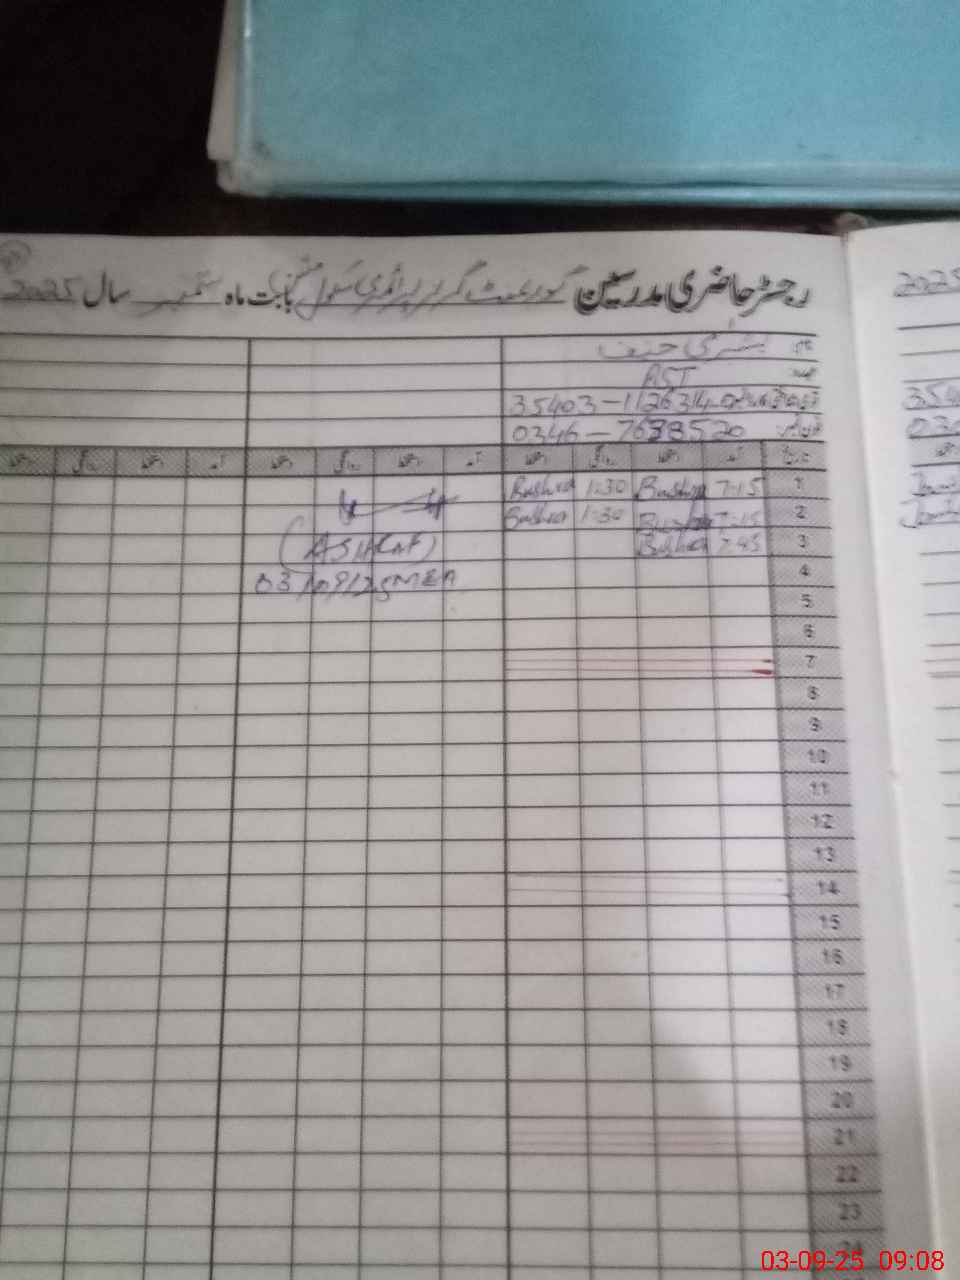 رجسٹر حاضری مدرسین گورنمنٹ گرلز پرائمری سکول بابت ماہ ستمبر سال 2025
2025
نام بشریٰ حنیف
عہدہ AST
35403-1126314-0
0346-7638520
تاریخ آمد دستخط روانگی دستخط آمد دستخط روانگی دستخط آمد دستخط روانگی دستخط
1 7:15 Bushra 1:30 Bushra
2 7:15 Bushra 1:30 Bushra
3 7:45 Bushra
(ASHRAF)
4
MEA
5
6
7
8
9
10
11
12
13
14
15
16
17
18
19
20
21
22
23
24
03-09-25 09:08